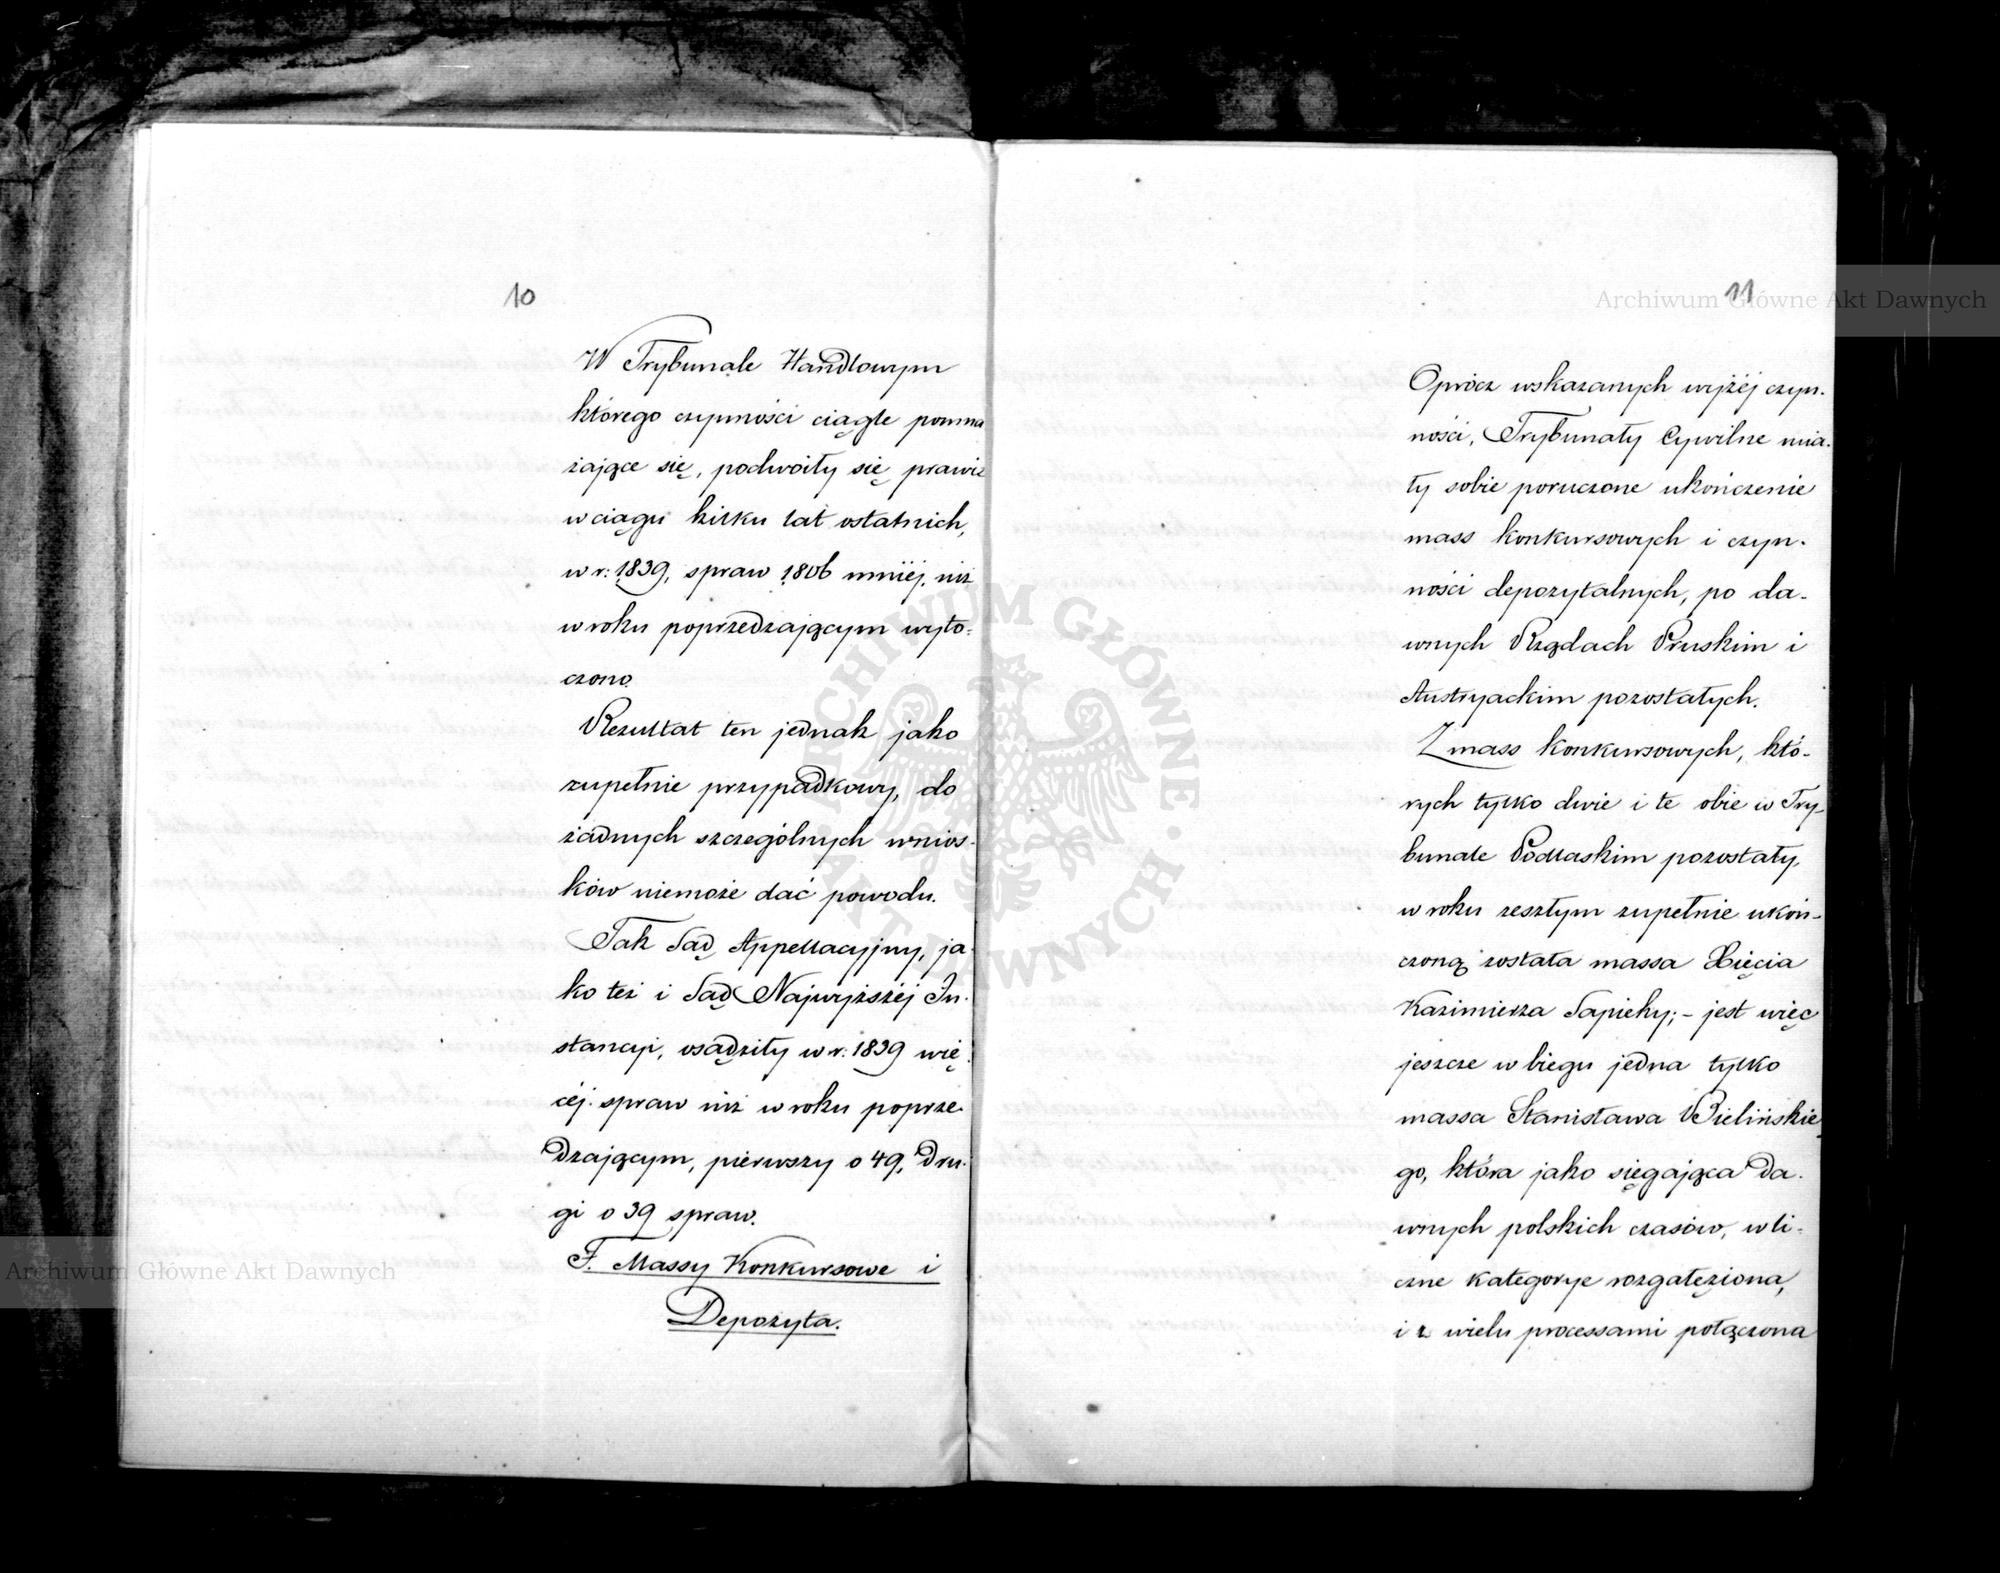 10
W Trybunale Handlowym
którego czynności ciągle pomna
żające się, podwoiły się prawie
w ciągu kilku lat ostatnich,
w r: 1839, spraw 1806 mniéj, niż
w roku poprzedzającym wyto-
czono.
Rezultat ten jednak jako
zupełnie przypadkowy, do
żadnych szczególnych wnios-
ków niemoże dać powodu.
Tak Sąd Appellacyjny, ja
ko też i Sąd Najwyższéj In-
stancyi, osądziły w r: 1839 wię-
céj spraw niż w roku poprze-
dzającym, pierwszy o 49, dru-
gi o 39 spraw.
F. Massy Konkursowe i
Depozyta.
11
Oprócz wskazanych wyżéj czyn-
ności, Trybunały Cywilne mia-
ły sobie poruczone ukończenie
mass konkursowych i czyn-
ności depozytalnych, po da-
wnych Rządach Pruskim i
Austryackim pozostałych.
Z mass konkursowych, któ-
rych tylko dwie i te obie w Try-
bunale Podlaskim pozostały,
w roku zeszłym zupełnie ukoń-
czoną została massa Xięcia
Kazimierza Sapiehy; - jest więc
jeszcze w biegu jedna tylko
massa Stanisława Bielińskie-
go, która jako sięgająca da-
wnych polskich czasów, w li-
czne kategorye rozgałęziona,
i z wielu processami połączona
Archiwum Główne Akt Dawnych
Archiwum Główne Akt Dawnych
ARCHIWUM GŁÓWNE · AKT DAWNYCH ·